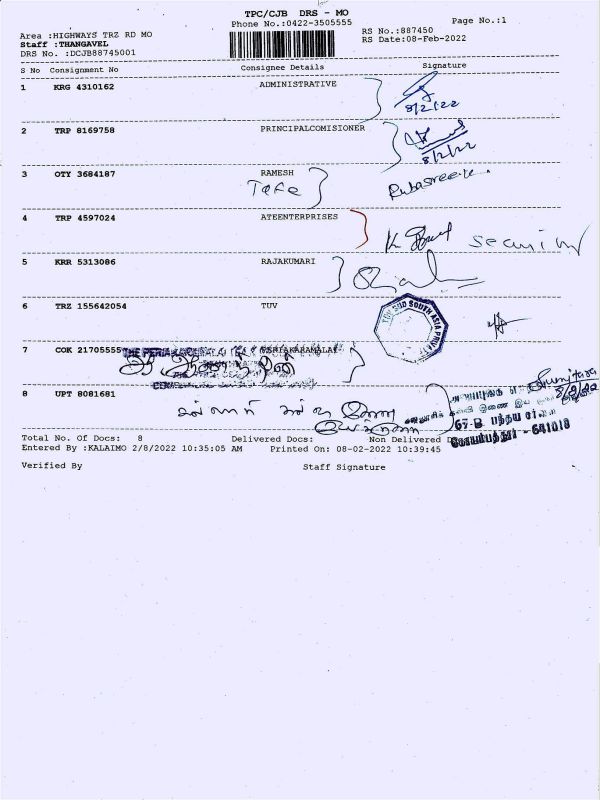 TPC/CJB DRS - MO
Phone No.:0422-3505555
Page No.:1
Area :HIGHWAYS TRZ RD MO
RS No.:887450
Staff :THANGAVEL
RS Date:08-Feb-2022
DRS No. :DCJB88745001
S No Consignment No Consignee Details Signature
1 KRG 4310162 ADMINISTRATIVE
8/2/22
2 TRP 8169758 PRINCIPALCOMISIONER
8/2/22
3 OTY 3684187 RAMESH
Tafe
4 TRP 4597024 ATEENTERPRISES
K security
5 KRR 5313086 RAJAKUMARI
6 TRZ 155642054 TUV
TUV SUD SOUTH ASIA
7 COK 21705555 PERIAKARAMALAI
8 UPT 8081681
67-B பந்தய
கோயம்புத்தூர் - 641018
Total No. Of Docs: 8 Delivered Docs: Non Delivered
Entered By :KALAIMO 2/8/2022 10:35:05 AM Printed On: 08-02-2022 10:39:45
Verified By Staff Signature